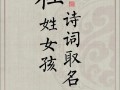 杜姓女孩
诗词取名